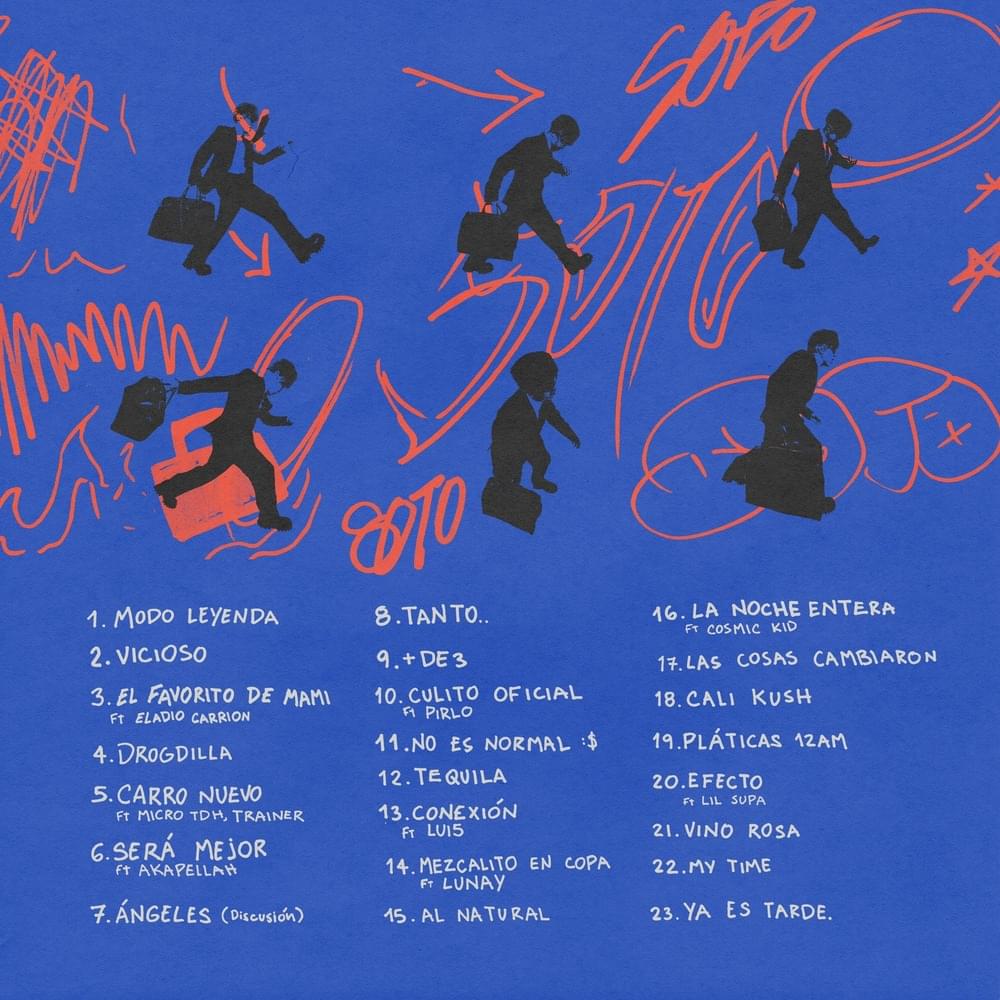 SOTO
SOTO
SOTO
1. MODO LEYENDA
2. VICIOSO
3. EL FAVORITO DE MAMI
FT ELADIO CARRION
4. DROGDILLA
5. CARRO NUEVO
FT MICRO TDH, TRAINER
6. SERÁ MEJOR
FT AKAPELLAH
7. ÁNGELES (Discusión)
8. TANTO..
9. +DE3
10. CULITO OFICIAL
FT PIRLO
11. NO ES NORMAL :$
12. TEQUILA
13. CONEXIÓN
FT LUI5
14. MEZCALITO EN COPA
FT LUNAY
15. AL NATURAL
16. LA NOCHE ENTERA
FT COSMIC KID
17. LAS COSAS CAMBIARON
18. CALI KUSH
19. PLÁTICAS 12AM
20. EFECTO
FT LIL SUPA
21. VINO ROSA
22. MY TIME
23. YA ES TARDE.